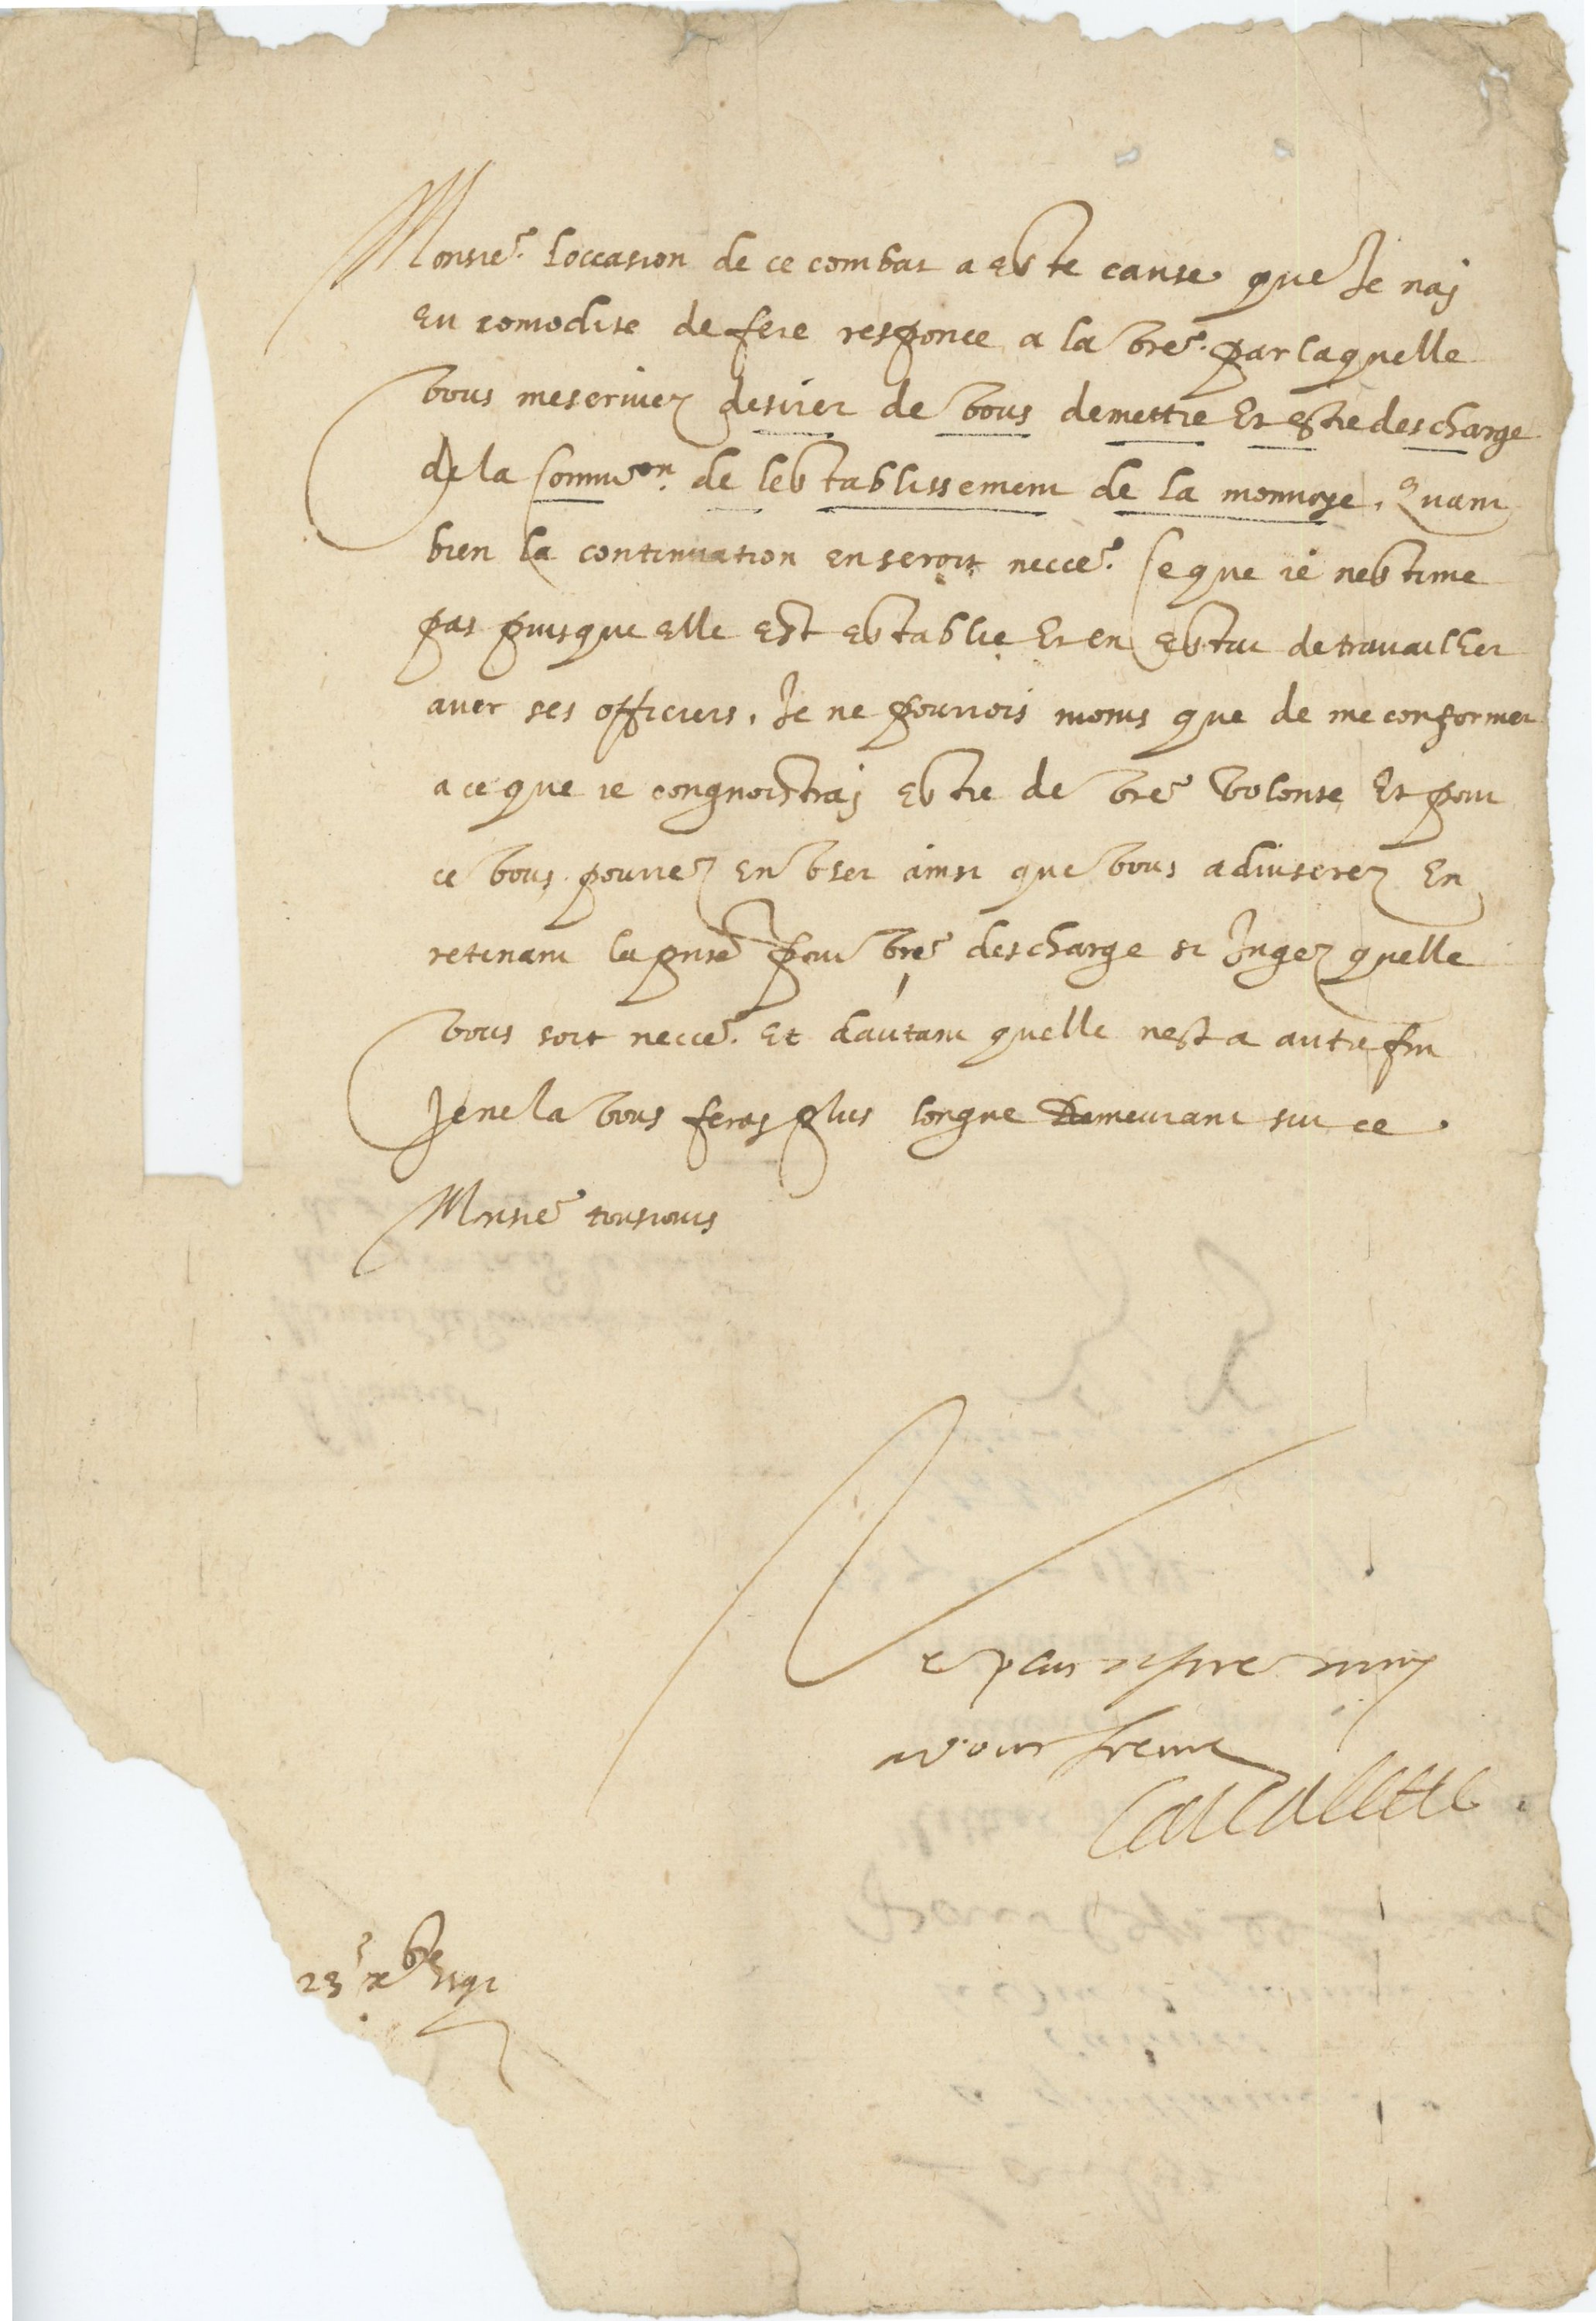 Monsieʳ. loccasion de ce combat a este cause que Je naj
eu comodite de fere responce a la vʳᵉ. par laquelle
vous mescrivez desirer de vous demettre Et estre descharge
de la Commi͠on. de lestablissement de la monnoye, Quant
bien la continuation en seroit necceʳᵉ. Ce que ie nestime
pas puisque elle est establie Et en estat de travailler
avec ses officiers, Je ne pourrois moins que de me conformer
a ce que ie congnoistraj estre de vʳᵉ volonte Et pour
ce vous pourrez en user ainsi que vous adviserez En
retenant la pn̄te pour vʳᵉ descharge si Jugez quelle
vous soit necceʳᵉ. Et dautant quelle nest a autre fin
Je ne la vous feraj plus longue Demeurant sur ce.
Monsieʳ tousiours
23ᵉ xbʳᵉ 1591